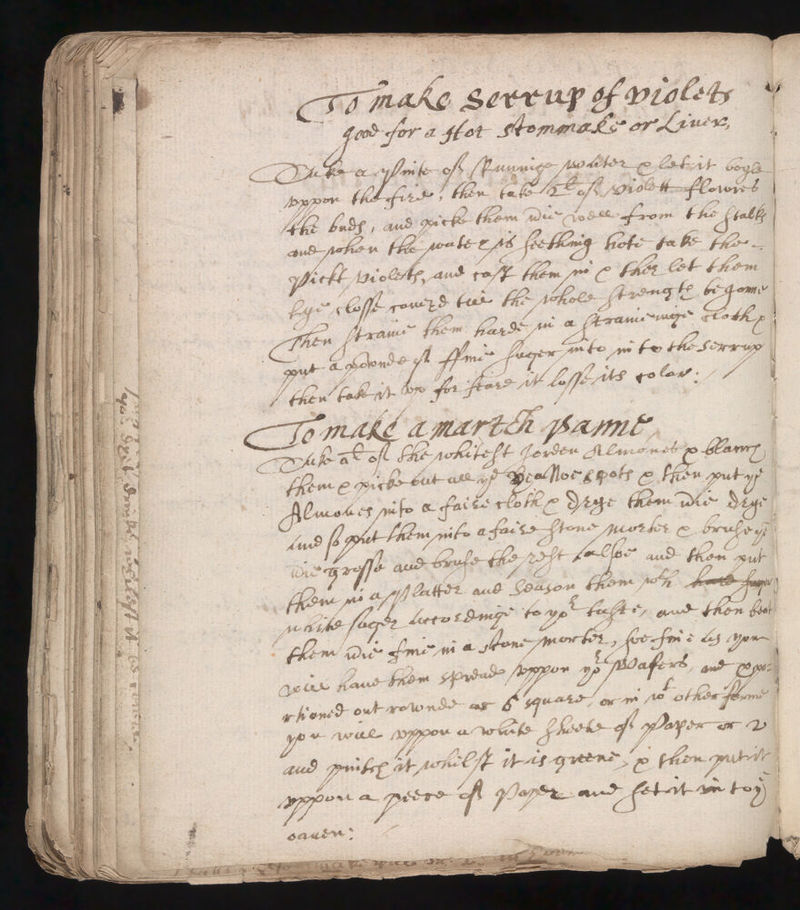 To make Serrup of violets
good for a Hot stommake or Liver,
Take a Pinte of Runnige water & let it boyle
uppon the fire, then take 1l of violett flowres
the buds, and picke them very well from the stalks
and when the water is seething hote take the
Pickt violets, and cast them in & then let them
lye closse coverd till the whole strength be gonne
Then straine them harde in a straineinge cloth &
put a pownde of ffine suger into in to the Serrup
then take it up for feare it losse its color:
To make a martch panne
Take a l of the whitest Jorden Almones & blanch
them & picke out all ye yealloe spots & then put ye
Almones into a faire cloth & drye them very drye
And so put them into a faire stone morter & bruse ye
grosse and bruse the rest allsoe and then put
them in a Platter and season them wth
white suger accordinge to yor taste, and then beat
them very fine in a stone morter, soe fine as you
will have them spread uppon yor Wafers, and
rtioned out rownde or 6 square, or in wt other forme
you will uppon a white sheete of Paper or 2
and pintch it whilst it is greene, & then put it
uppon a peece of Paper and set it in to ye
oaven: